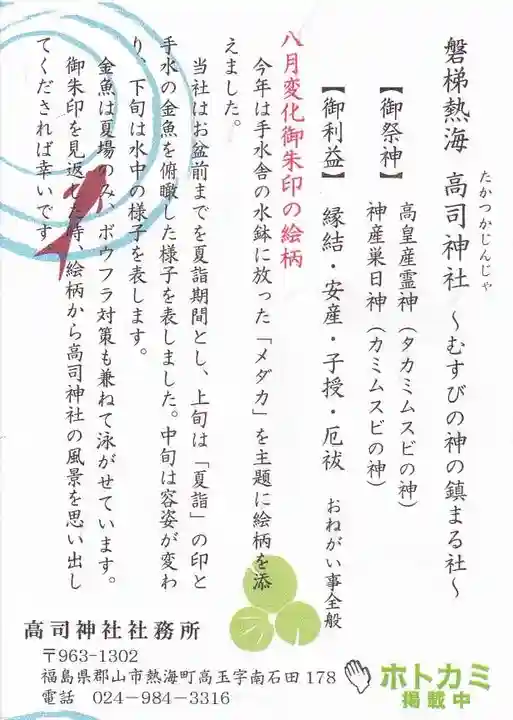 磐梯熱海 高司神社 ～むすびの神の鎮まる社～
たかつかじんじゃ
【御祭神】 高皇産霊神（タカミムスビの神）
神産巣日神（カミムスビの神）
【御利益】 縁結・安産・子授・厄祓 おねがい事全般
八月変化御朱印の絵柄
今年は手水舎の水鉢に放った「メダカ」を主題に絵柄を添
えました。
当社はお盆前までを夏詣期間とし、上旬は「夏詣」の印と
手水の金魚を俯瞰した様子を表しました。中旬は容姿が変わ
り、下旬は水中の様子を表します。
金魚は夏場のみ、ボウフラ対策も兼ねて泳がせています。
御朱印を見返した時、絵柄から高司神社の風景を思い出し
てくだされば幸いです。
高司神社社務所
〒963-1302
福島県郡山市熱海町高玉字南石田178
電話 024-984-3316
ホトカミ
掲載中